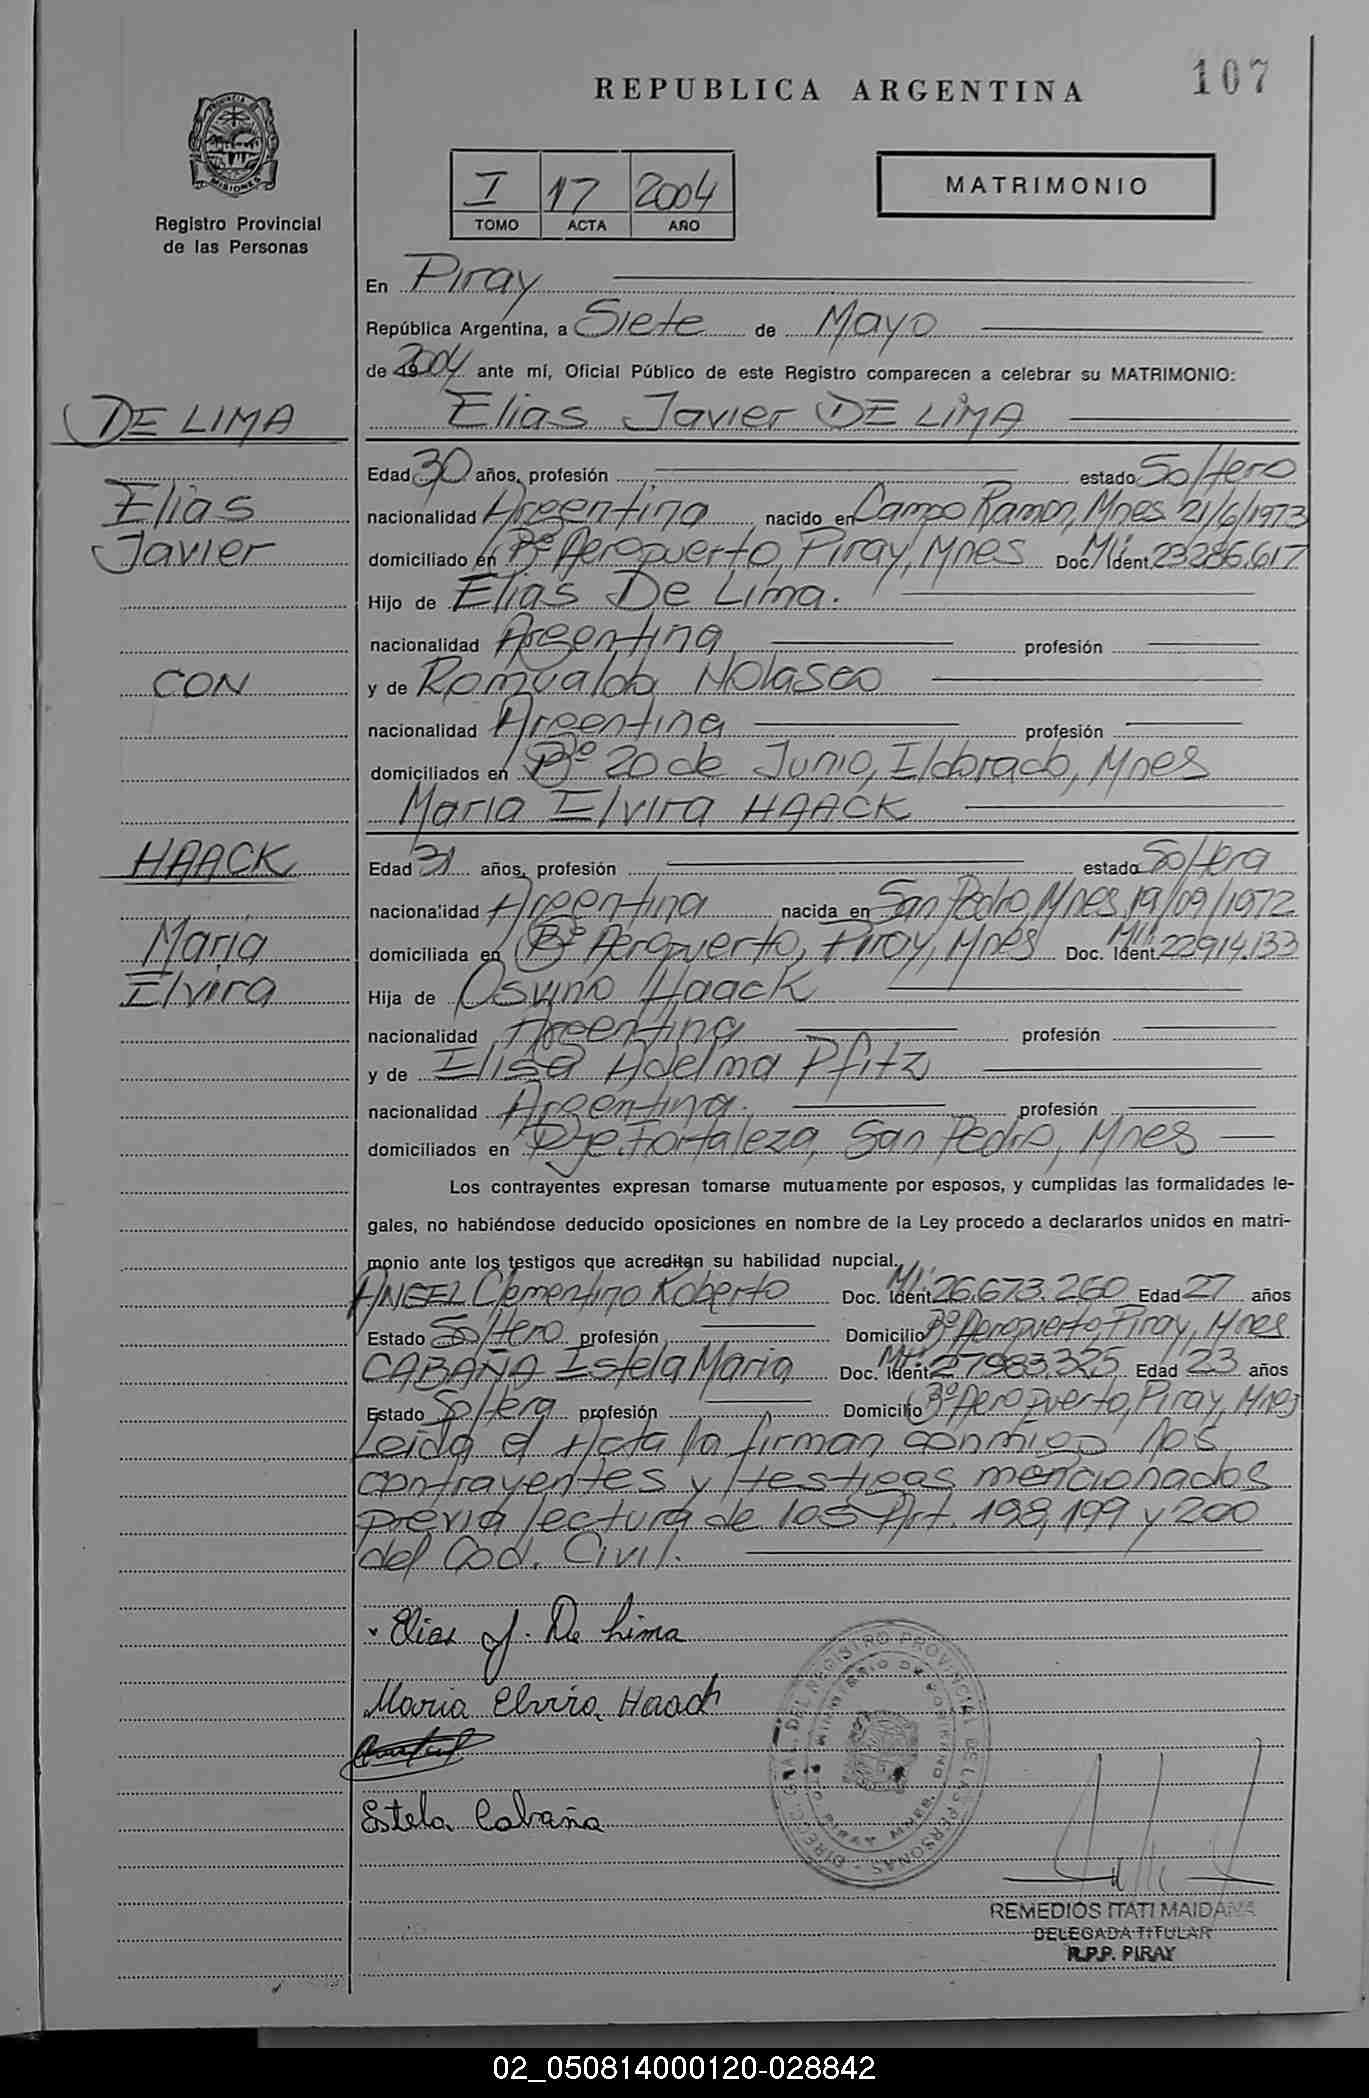 107
REPUBLICA ARGENTINA
PROVINCIA DE
MISIONES
Registro Provincial
de las Personas
I 17 2004
TOMO ACTA AÑO
MATRIMONIO
En Piray
República Argentina, a Siete de Mayo
de 2004 ante mí, Oficial Público de este Registro comparecen a celebrar su MATRIMONIO:
DE LIMA
Elias
Javier
CON
HAACK
Maria
Elvira
Elias Javier DE LIMA
Edad 30 años, profesión estado Soltero
nacionalidad Argentina nacido en Campo Ramon, Mnes 21/6/1973
domiciliado en Bº Aeropuerto, Piray, Mnes Doc. Ident. M.I. 23.286.617
Hijo de Elias De Lima.
nacionalidad Argentina profesión
y de Romualda Nolasco
nacionalidad Argentina profesión
domiciliados en Bº 20 de Junio, Eldorado, Mnes
Maria Elvira HAACK
Edad 31 años, profesión estado Soltera
nacionalidad Argentina nacida en San Pedro, Mnes 19/09/1972
domiciliada en Bº Aeropuerto, Piray, Mnes Doc. Ident. M.I. 22.914.133
Hija de Osvino Haack
nacionalidad Argentina profesión
y de Elisa Adelma Pfitz
nacionalidad Argentina. profesión
domiciliados en Pje. Fortaleza, San Pedro, Mnes
Los contrayentes expresan tomarse mutuamente por esposos, y cumplidas las formalidades le-
gales, no habiéndose deducido oposiciones en nombre de la Ley procedo a declararlos unidos en matri-
monio ante los testigos que acreditan su habilidad nupcial.
ANGEL Clementino Roberto Doc. Ident. M.I. 26.673.260 Edad 27 años
Estado Soltero profesión Domicilio Bº Aeropuerto, Piray, Mnes
CABAÑA Estela Maria Doc. Ident. M.I. 27983.325 Edad 23 años
Estado Soltera profesión Domicilio Bº Aeropuerto, Piray, Mnes
Leida el Acta la firman conmigo los
contrayentes y testigos mencionados
previa lectura de los Art. 198, 199 y 200
del Cod. Civil.
Elias J. De Lima
Maria Elvira Haack
Estela Cabaña
DIRECC. GRAL. DEL REGISTRO PROVINCIAL DE LAS PERSONAS
MINISTERIO DE GOBIERNO
PTO. PIRAY MNES.
REMEDIOS ITATI MAIDANA
DELEGADA TITULAR
R.P.P. PIRAY
02_050814000120-028842